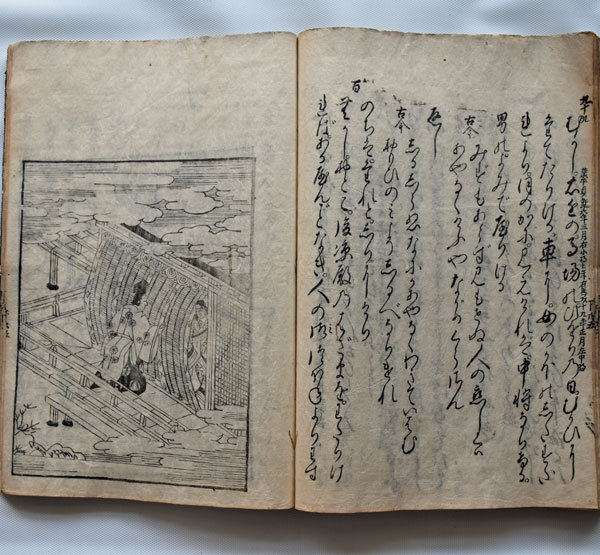 九十九
むかし右近の馬場のひをりの日むかひに
たてたりける車に女のかほのしたすだ
れよりほのかに見えければ中将なりける
男のよみてやりける
古今 みずもあらず見もせぬ人の恋しくは
あやなくけふやながめくらさん
返し
古今 しるしらぬなにかあやなくわきていはむ
おもひのみこそしるべなりけれ
のちはたれとしりにけり
百
むかしおとこ後涼殿のはざまをわたりけ
ればあるやんごとなき人の御つぼねよりわす